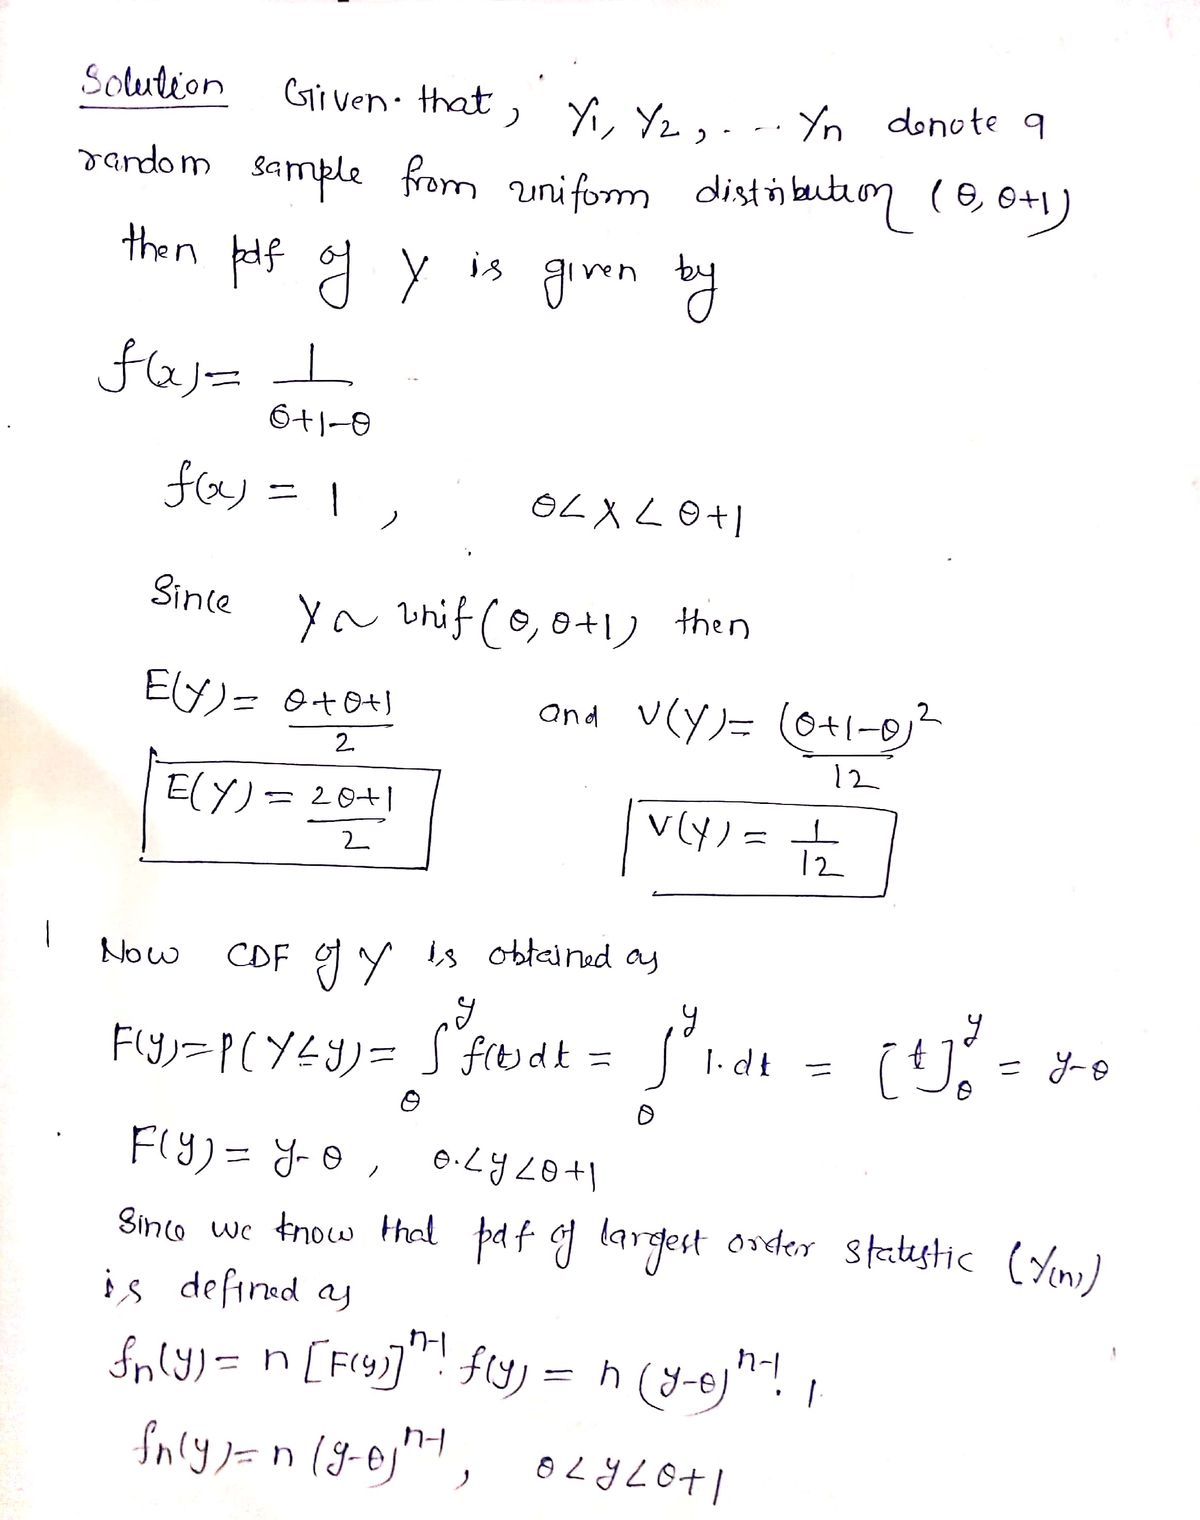 Solution Given that, Y1, Y2, ... Yn denote a
random sample from uniform distribution (θ, θ+1)
then pdf of Y is given by
f(x) = 1/(θ+1-θ)
f(x) = 1, θ<X<θ+1
Since Y ~ unif(θ, θ+1) then
E(Y) = (θ+θ+1)/2 and V(Y) = (θ+1-θ)²/12
E(Y) = (2θ+1)/2 V(Y) = 1/12
Now CDF of Y is obtained as
F(y) = P(Y≤y) = ∫_θ^y f(t)dt = ∫_θ^y 1.dt = [t]_θ^y = y-θ
F(y) = y-θ, θ<y<θ+1
Since we know that pdf of largest order statistic (Y(n))
is defined as
fn(y) = n [F(y)]^(n-1). f(y) = n (y-θ)^(n-1). 1
fn(y) = n (y-θ)^(n-1), θ<y<θ+1